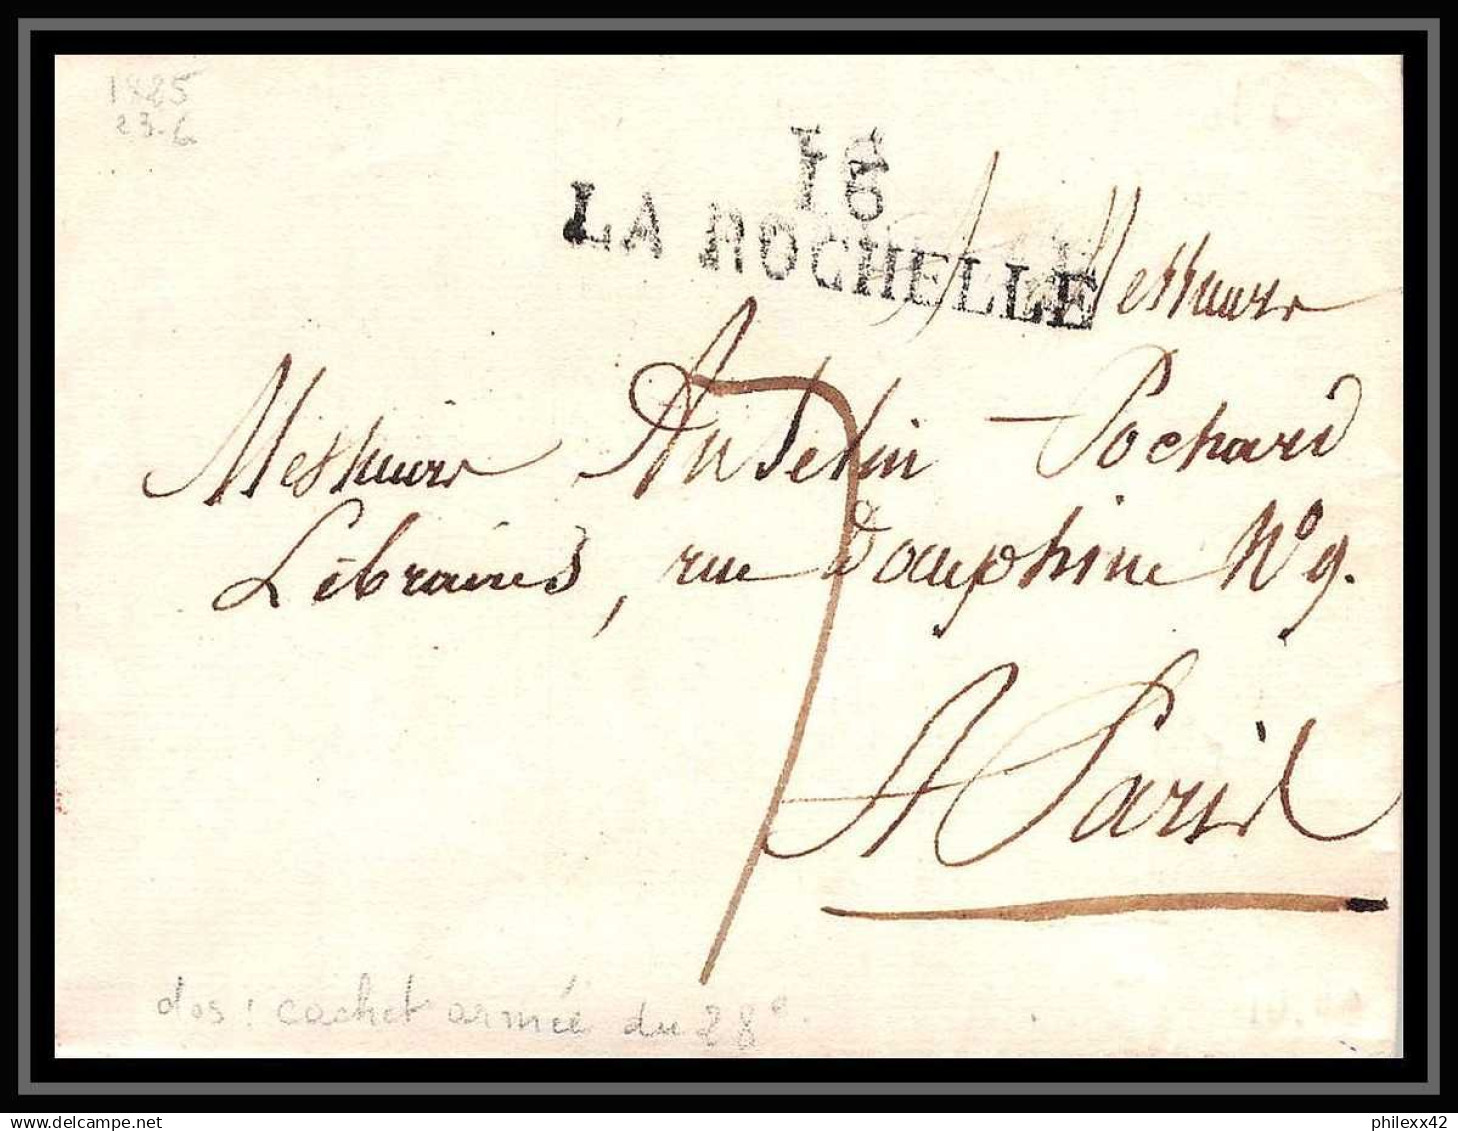 1825
23-6
16
LA ROCHELLE
A Messieurs
Messieurs Anselin Pochard
Libraires, rue Dauphine N° 9.
7
A Paris
dos : cachet armée du 28e.
philexx42